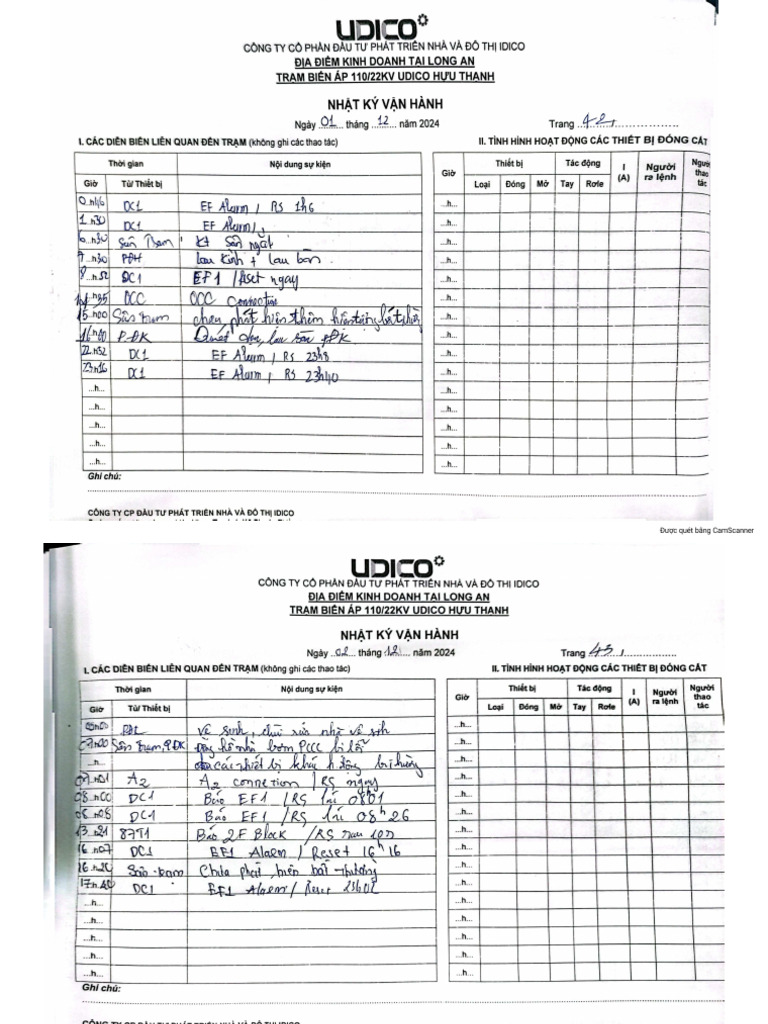 UDICO
CÔNG TY CỔ PHẦN ĐẦU TƯ PHÁT TRIỂN NHÀ VÀ ĐÔ THỊ IDICO
ĐỊA ĐIỂM KINH DOANH TẠI LONG AN
TRẠM BIẾN ÁP 110/22KV UDICO HỰU THẠNH
NHẬT KÝ VẬN HÀNH
Ngày 01 tháng 12 năm 2024 Trang 42
I. CÁC DIỄN BIẾN LIÊN QUAN ĐẾN TRẠM (không ghi các thao tác) II. TÌNH HÌNH HOẠT ĐỘNG CÁC THIẾT BỊ ĐÓNG CẮT
Thời gian Nội dung sự kiện Giờ Thiết bị Tác động I (A) Người ra lệnh Người thao tác
Giờ Từ/ Thiết bị Loại Đóng Mở Tay Rơle
0h46 DC1 EF Alarm / RS 1h6
1h30 DC1 EF Alarm /
6h30 Sân Trạm KT Sân ngắt
7h30 PĐH lau kính + lau bàn
8h52 DC1 EF1 / Reset ngay
h35 OCC OCC Connection
15h00 Sân trạm chưa phát hiện thêm hiện tượng bất thường
16h00 P.ĐK Quét lau sàn PĐK
22h52 DC1 EF Alarm / RS 23h8
23h16 DC1 EF Alarm / RS 23h40
...h...
...h...
...h...
...h...
...h...
Ghi chú:
CÔNG TY CP ĐẦU TƯ PHÁT TRIỂN NHÀ VÀ ĐÔ THỊ IDICO
Được quét bằng CamScanner
UDICO
CÔNG TY CỔ PHẦN ĐẦU TƯ PHÁT TRIỂN NHÀ VÀ ĐÔ THỊ IDICO
ĐỊA ĐIỂM KINH DOANH TẠI LONG AN
TRẠM BIẾN ÁP 110/22KV UDICO HỰU THẠNH
NHẬT KÝ VẬN HÀNH
Ngày 02 tháng 12 năm 2024 Trang 43
I. CÁC DIỄN BIẾN LIÊN QUAN ĐẾN TRẠM (không ghi các thao tác) II. TÌNH HÌNH HOẠT ĐỘNG CÁC THIẾT BỊ ĐÓNG CẮT
Thời gian Nội dung sự kiện Giờ Thiết bị Tác động I (A) Người ra lệnh Người thao tác
Giờ Từ/ Thiết bị Loại Đóng Mở Tay Rơle
vệ sinh, chùi rửa nhà vệ sinh
07h00 Sân trạm, P.ĐK đồng hồ nhà bơm PCCC bị lỗi
...h... các thiết bị khác h động bt
07h01 A2 A2 connetion / RS ngay
08h00 DC1 Báo EF1 / RS lúc 0801
08h08 DC1 Báo EF1 / RS lúc 08h26
13h21 87T1 Báo 2F Block / RS sau
16h07 DC1 EF1 Alarm / Reset 16h16
16h20 Sân trạm Chưa phát hiện bất thường
17h40 DC1 EF1 Alarm / Reset 23h02
...h...
...h...
...h...
...h...
...h...
Ghi chú:
CÔNG TY CP ĐẦU TƯ PHÁT TRIỂN NHÀ VÀ ĐÔ THỊ IDICO